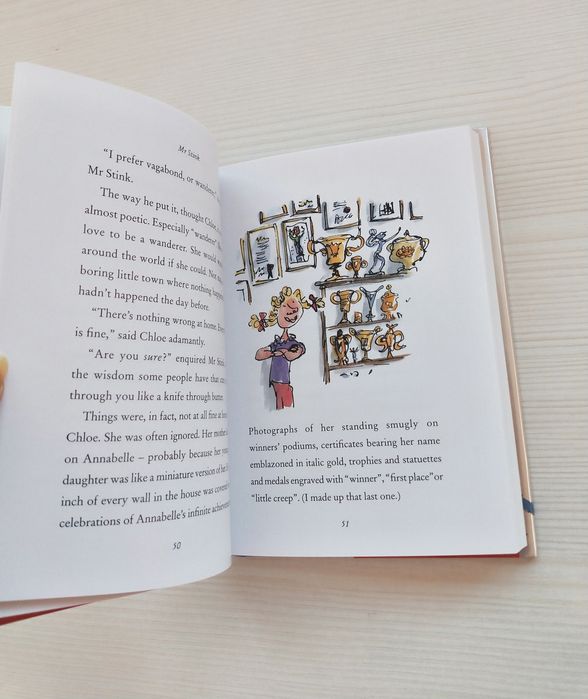 Mr Stink
"I prefer vagabond, or wanderer,"
Mr Stink.
The way he put it, thought Chloe,
almost poetic. Especially "wanderer".
love to be a wanderer. She would
around the world if she could. Not
boring little town where nothing
hadn't happened the day before.
"There's nothing wrong at home.
is fine," said Chloe adamantly.
"Are you sure?" enquired Mr Stink,
the wisdom some people have that
through you like a knife through butter.
Things were, in fact, not at all fine at
Chloe. She was often ignored. Her mother
on Annabelle – probably because her
daughter was like a miniature version of
inch of every wall in the house was covered
celebrations of Annabelle's infinite
50
Photographs of her standing smugly on
winners' podiums, certificates bearing her name
emblazoned in italic gold, trophies and statuettes
and medals engraved with "winner", "first place" or
"little creep". (I made up that last one.)
51